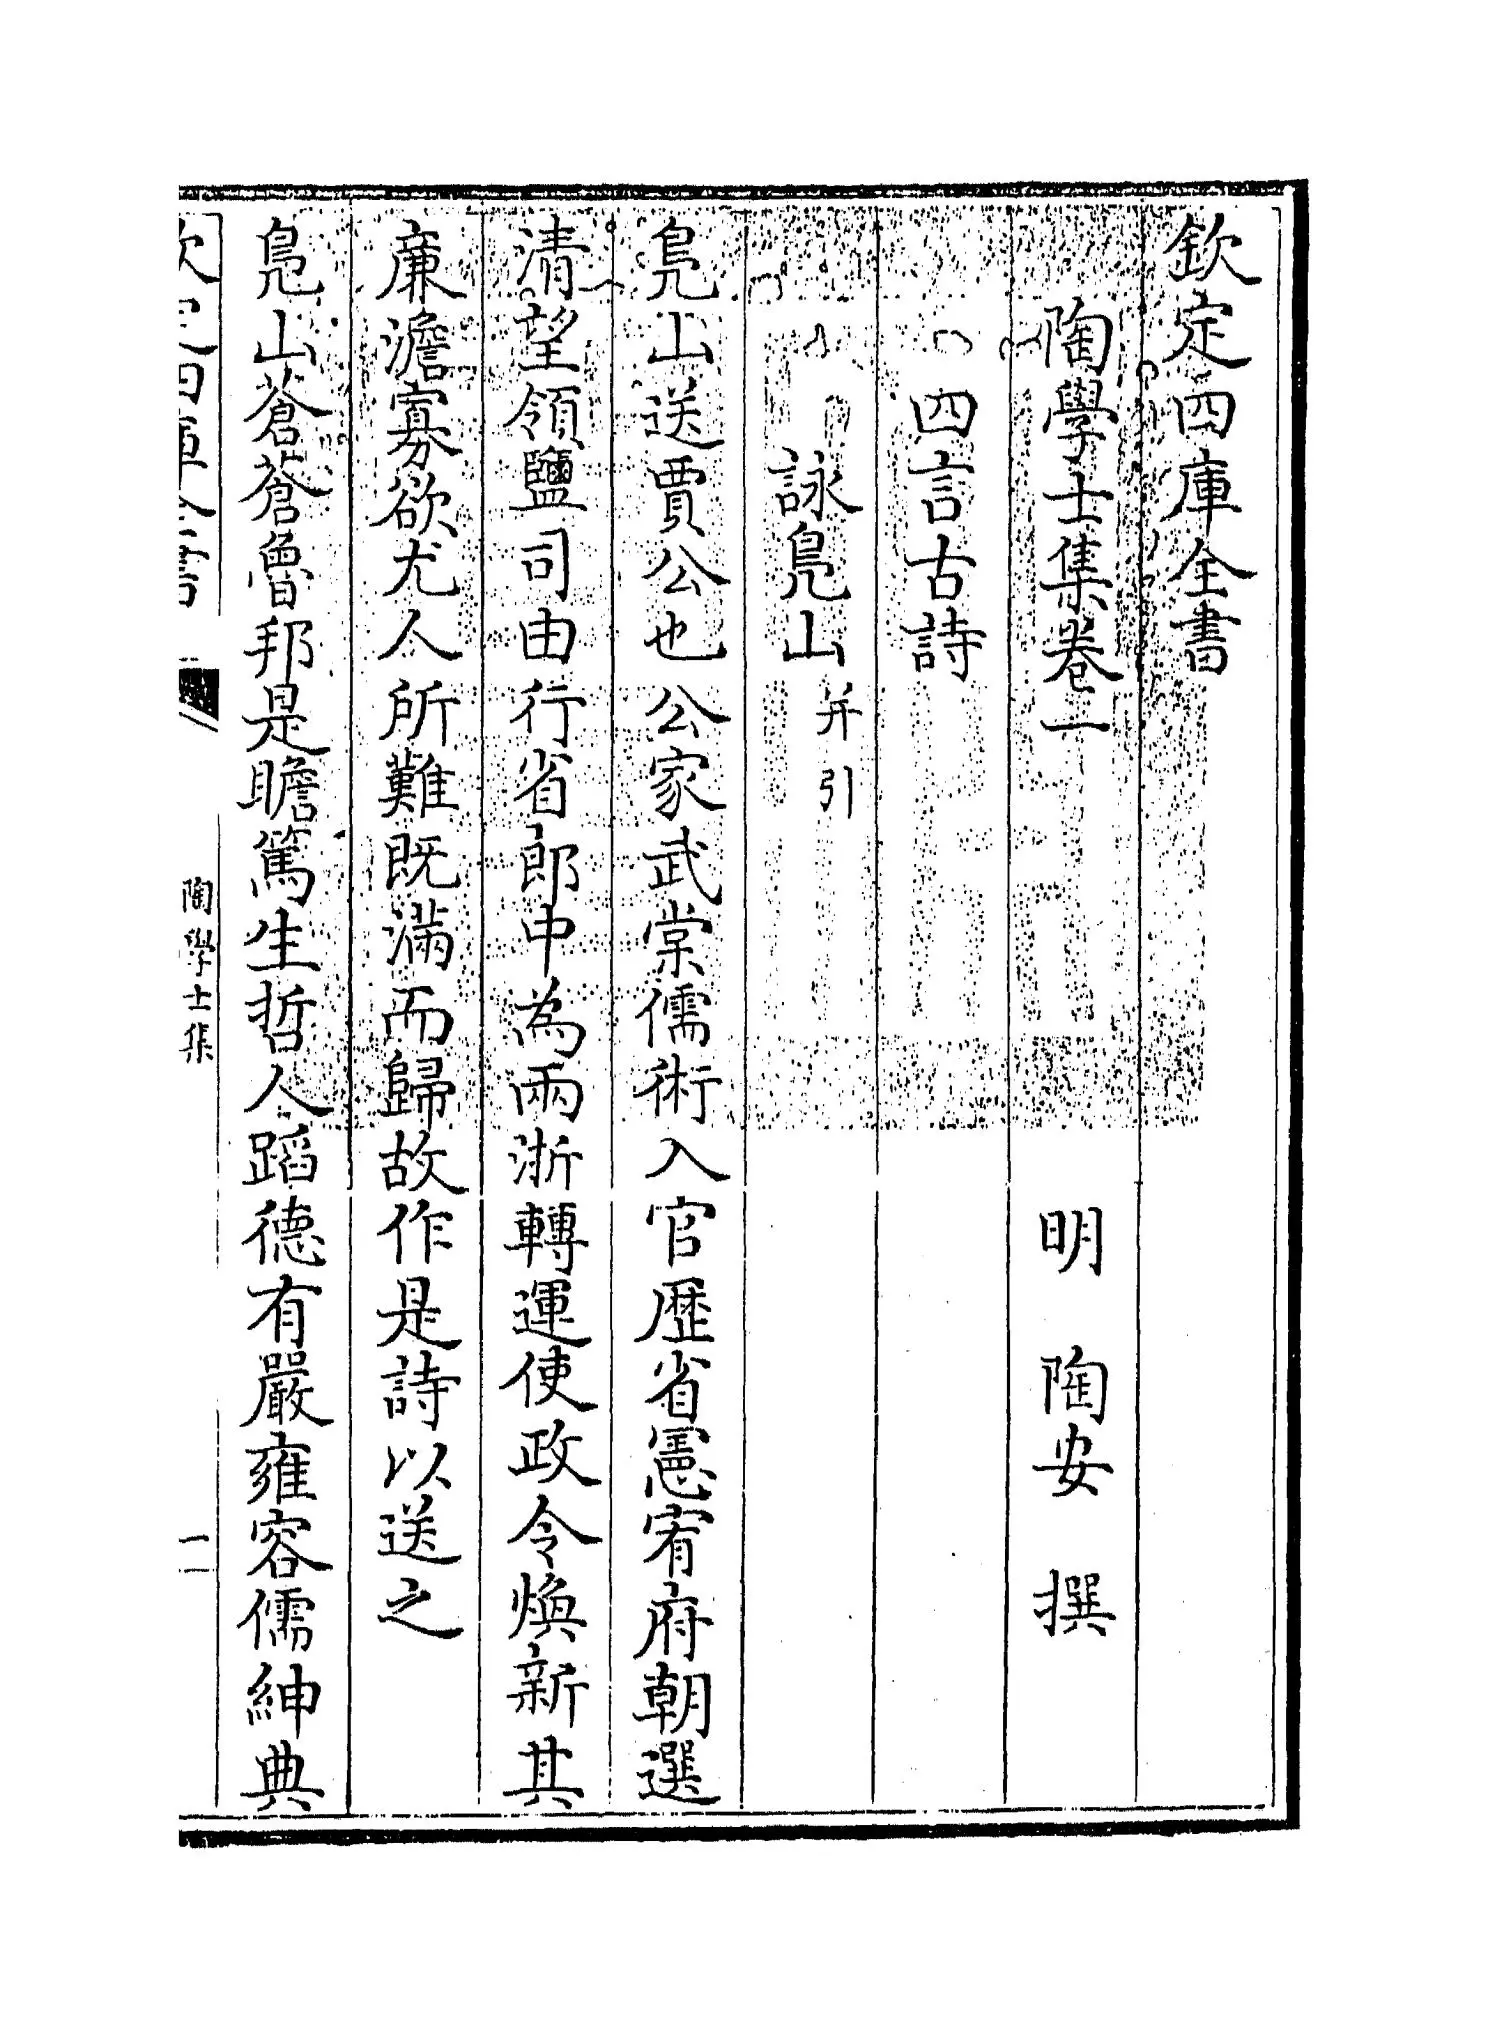 欽定四庫全書
陶學士集卷一 明 陶安 撰
四言古詩
詠鳬山 并引
鳬山送賈公也公家武棠儒術入官歴省憲宥府朝選
清望領鹽司由行省郎中為兩浙轉運使政令煥新其
廉澹寡欲尤人所難既滿而歸故作是詩以送之
鳬山蒼蒼魯邦是瞻篤生哲人蹈德有嚴雍容儒紳典
欽定四庫全書 陶學士集 一